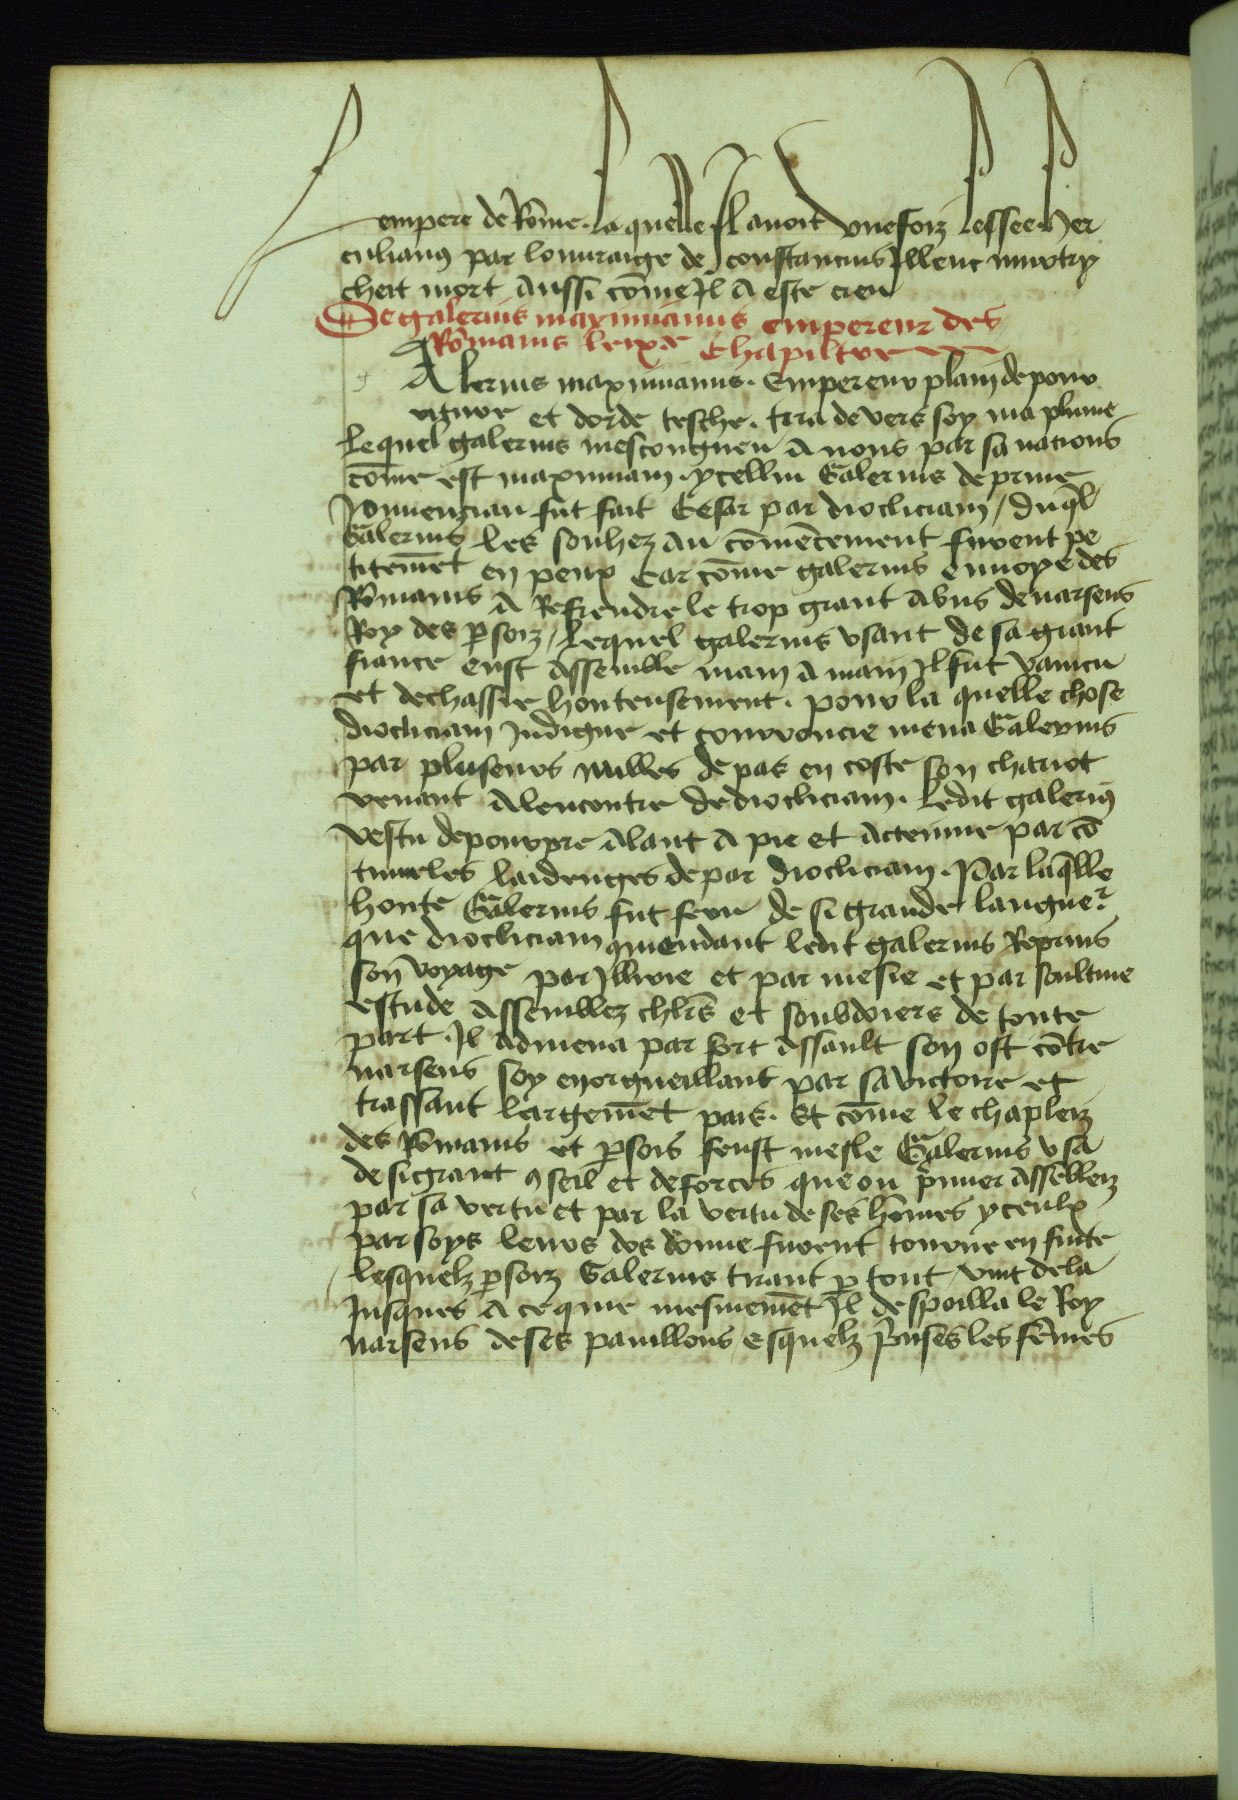 empere de Rōme. la quelle Il avoit vne foiz lessee. Her
culianꝰ par louuraige de constancius Illeuc murtry
cheit mort Aussi cōme Il A este creu
De galerius maximianus empereur des
Rōmains le ixᵉ Chapiltre
Alerius maximianus. Empereur plain de pour
et dorde tesche. tira de vers soy ma plume
le quel galerius mescongneu A nous par sa nacions
cōme est maximiam. ycelluy Galerius de prime
Iouuenz fut fait Cesar par diocliciam / duql̄
Galerius les souhez Au cōmēcement furent pe
titemēt en peux Car cōme galerius enuoye des
Rōmains A Refrendre le trop grant Abus de narseus
Roy des p̄soiz / lequel galerius vsant de sa grant
fiance eust Assemble main A main Il fut vaincu
et dechassie honteusement. pour la quelle chose
diocliciam Indigne et courroucie mena Galerius
par pluseurs milles de pas en coste son chariot
venant A lencontre de diocliciam. ledit galeriꝰ
vestu de pourpre Alant A pie et Actenue par cō
tinueles laidenges de par diocliciam. Par laq̄lle
honte Galerius fut feru de si grande langueʳ
que diocliciam ledit galerius Reprins
son voyage par Illirie et par mesie et par soultiue
estude Assemblez chlrs̄ et souldoiers de toute
part. Il Admena par fort Assault son ost cōtre
narseus soy enorgueillant par sa victoire et
trassant largemēt pais. Et cōme le chapleiz
des Rōmains et p̄sois feust mesle Galerius vsa
de si grant ꝯseil et de forces que ou p̄mier Assēbleiz
par sa vertu et par la vertu de ses hōmes yceulx
par soys leurs dos dōnne furent tourne en fuite
lesquelz p̄soiz Galerius tirant p̄ tout vint de la
Iusques A ce que mesmemēt Il despoilla le Roy
narseus de ses pauillons esquelz p̄nses les fēmes